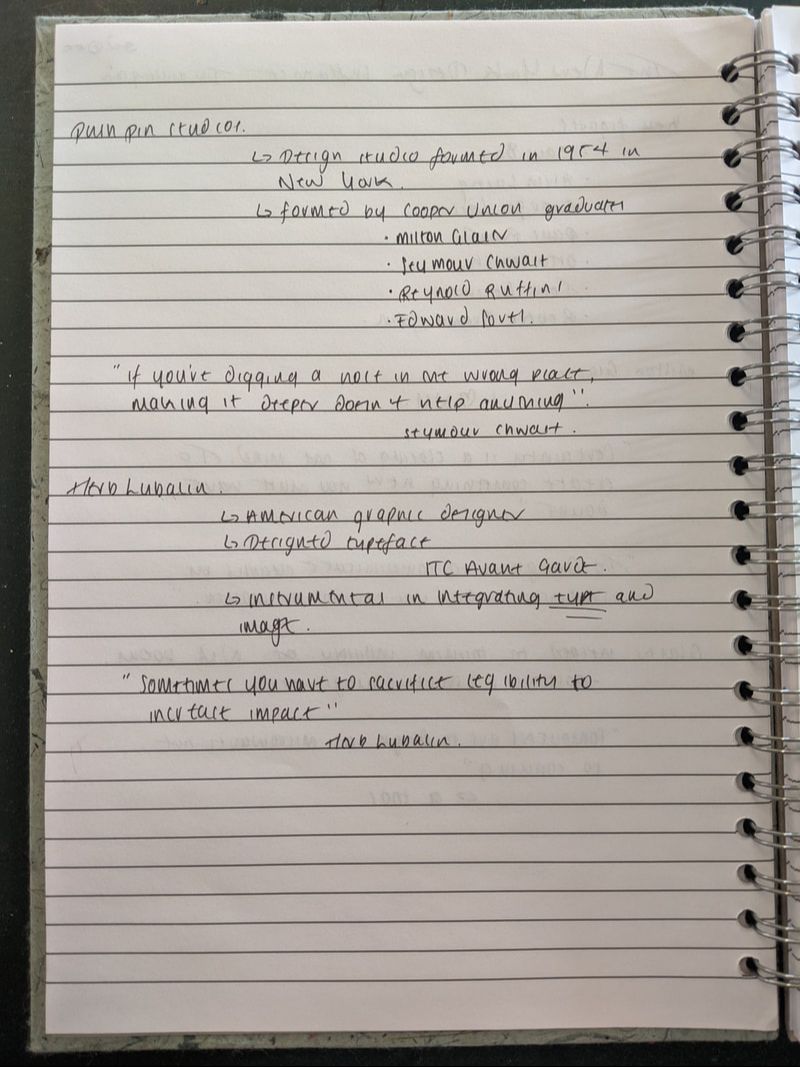 Push pin studios.
↳ Design studio formed in 1954 in
New York.
↳ formed by Cooper Union graduates
· Milton Glaser
· Seymour Chwast
· Reynold Ruffins
· Edward Sorel.
"if you've digging a hole in the wrong place,
making it deeper doesn't help anything".
Seymour Chwast.
Herb Lubalin.
↳ American graphic designer
↳ Designed typeface
ITC Avant Garde.
↳ instrumental in integrating type and
image.
"sometimes you have to sacrifice legibility to
increase impact"
Herb Lubalin.